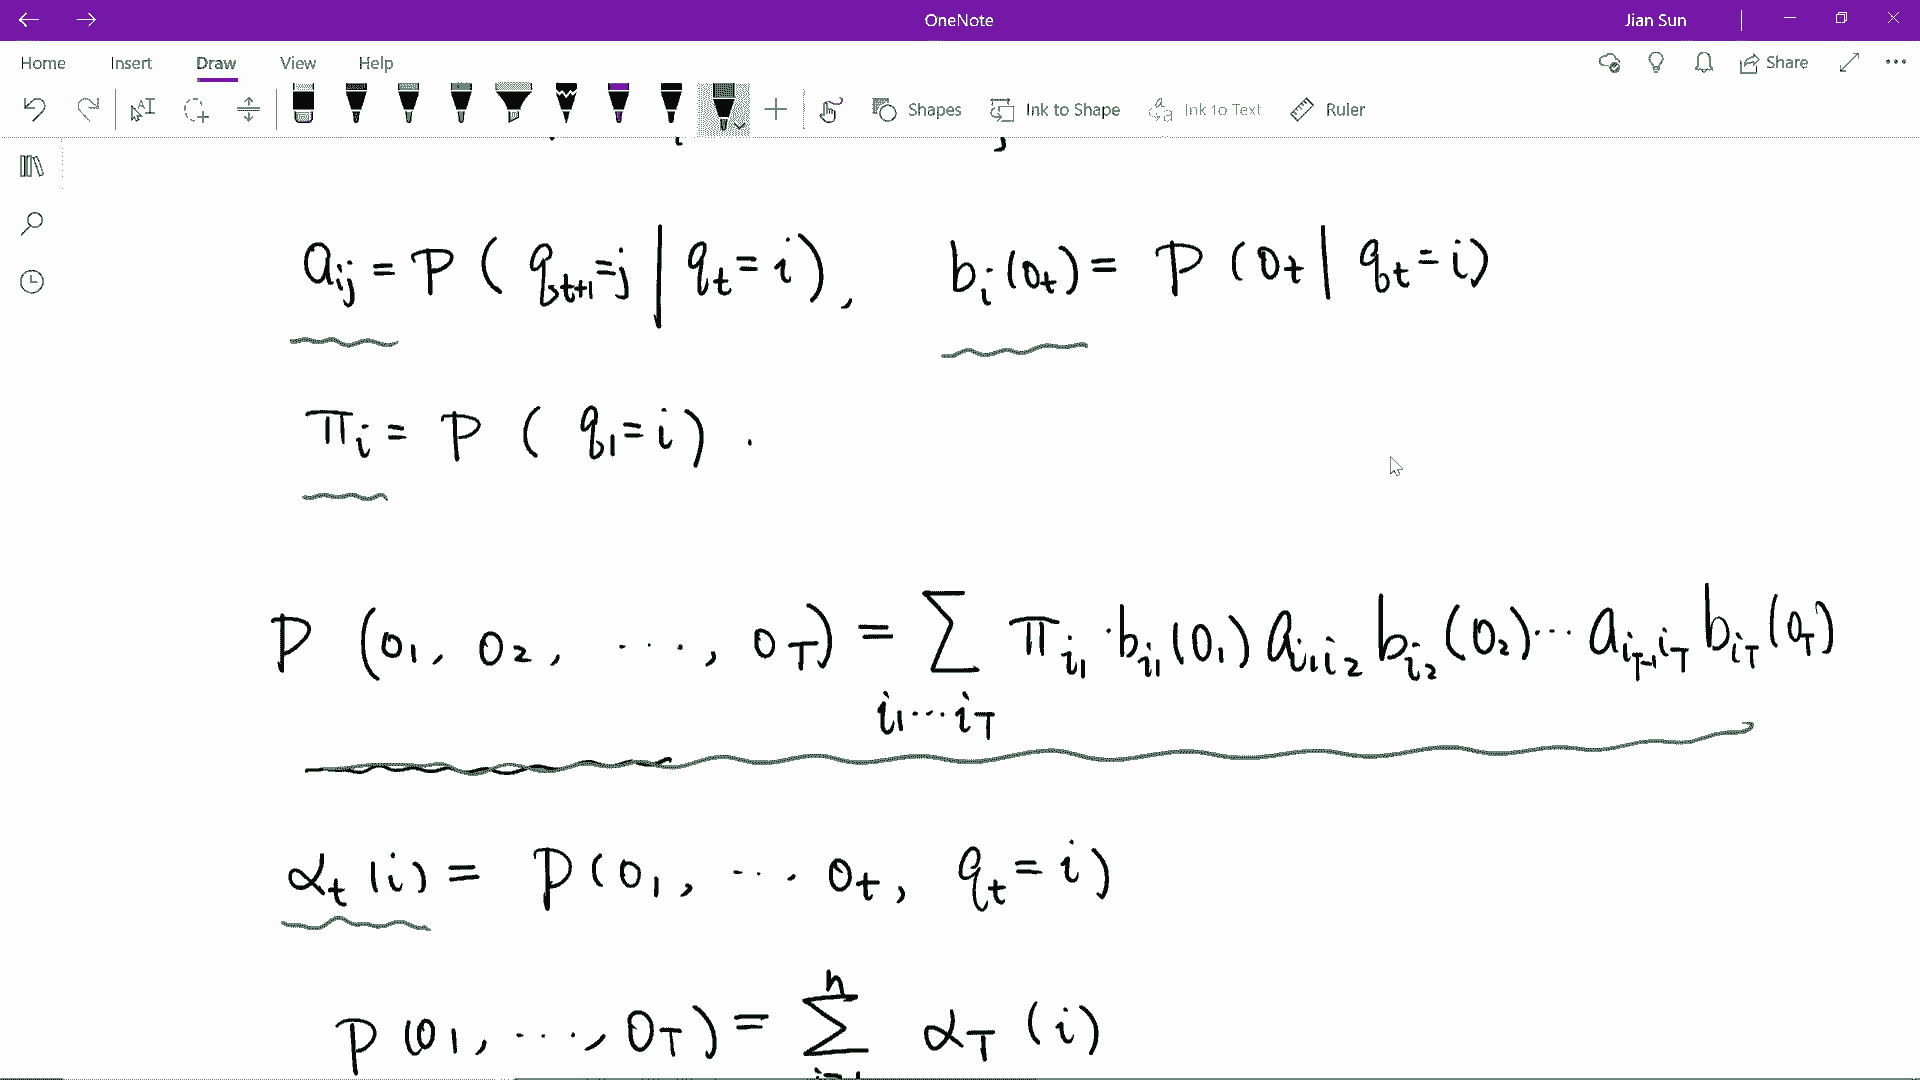 OneNote
Jian Sun
Home Insert Draw View Help
Share
Shapes Ink to Shape Ink to Text Ruler
a_{ij} = P ( q_{t+1}=j | q_t = i ) , b_i (o_t) = P (o_t | q_t = i)
π_i = P ( q_1 = i ) .
P (o_1, o_2, ..., o_T) = ∑_{i_1...i_T} π_{i_1} · b_{i_1}(o_1) a_{i_1 i_2} b_{i_2}(o_2) ... a_{i_{T-1} i_T} b_{i_T}(o_T)
α_t (i) = P(o_1, ... o_t, q_t = i)
P (o_1, ..., o_T) = ∑_{i=1}^{n} α_T (i)